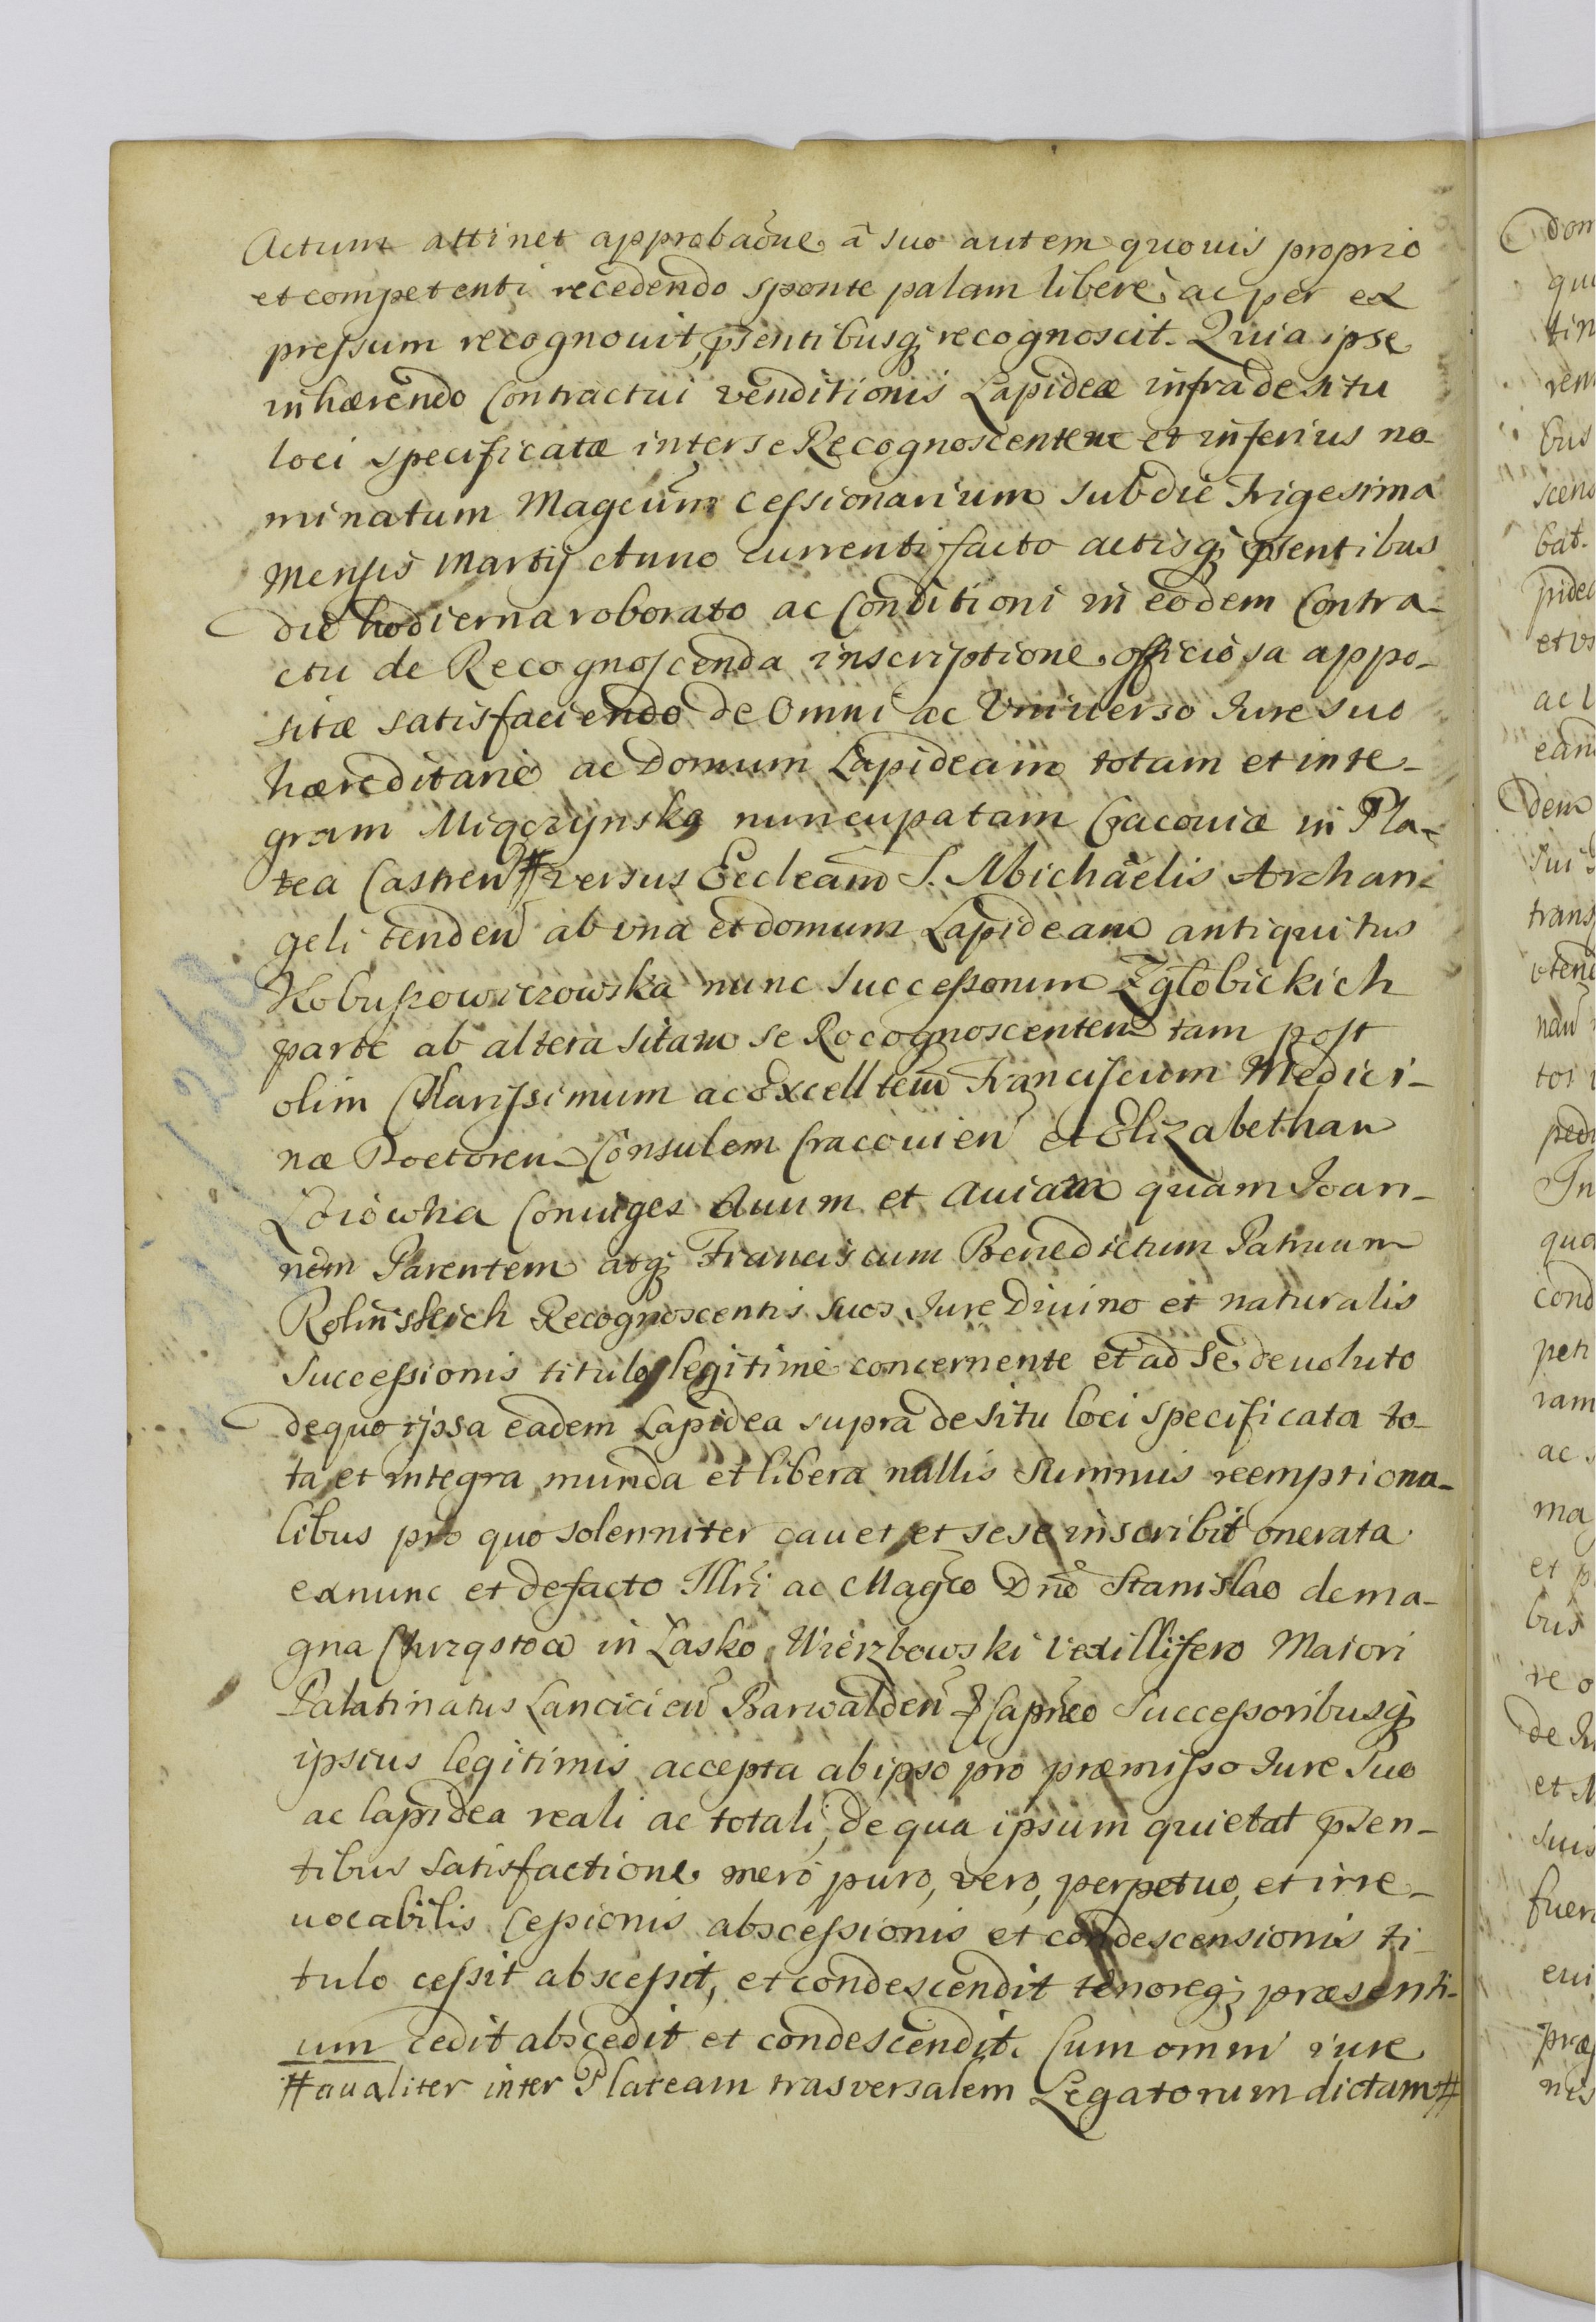 Actum attinet approbaōne, a suo autem quovis proprio
et competenti recedendo sponte palam libere, ac per ex
pressum recognovit, pr̄sentibusq; recognoscit. Quia ipse
inhærendo Contractui venditionis Lapideæ infra de situ
loci specificatæ inter se Recognoscentem et inferius no-
minatum Magcūm Cessionarium sub die Trigesima
Mensis Martij Anno currenti facto actisq; pr̄sentibus
die hodierna roborato ac Conditioni in eodem Contra-
ctu de Recognoscenda inscriptione officiosa appo-
sitæ satisfaciendo de Omni ac Universo Iure suo
hæreditario ac Domum Lapideam totam et inte-
gram Miączynską nuncupatam Cracoviæ in Pla-
tea Castren̄ # versus Eccleām S. Michaelis Archan-
geli tenden̄ ab una et domum Lapideam antiquitus
Kobuszowiczowska nunc Successorum Zgłobickich
parte ab altera sitam se Recognoscentem tam post
olim Clarissimum ac Excelltem̄ Franciscum Medici-
næ Doctorem Consulem Cracovien̄ et Elizabetham
Coniuges Avum et Aviam quam Ioan-
nem Parentem atq; Franciscum Benedictum Patruum
Rolinskich Recognoscentis suos Iure Divino et naturalis
Successionis titulo legitime concernente et ad se devoluto
de quo ipsa eadem Lapidea supra de situ loci specificata to-
ta et integra munda et libera nullis Summis reemptiona-
libus pro quo solenniter cavet et sese inscribit onerata
exnunc et defacto Illrī ac Magco Dnō Stanislao de ma-
gna Chrząstow in Łasko Wierzbowski Vexillifero Maiori
Palatinatus Lancicien̄ Barwalden̄ & Capneo Successoribusq;
ipsius legitimis accepta ab ipso pro præmisso Iure suo
ac lapidea reali ac totali, de qua ipsum quietat pr̄sen-
tibus satisfactione, mero puro, vero, perpetuo, et irre-
vocabilis Cessionis abscessionis et condescensionis ti-
tulo cessit abscessit, et condescendit tenoreq; præsenti-
um cedit abscedit et condescendit. Cum omni iure
# aualiter inter Plateam trasversalem Legatorum dictam #